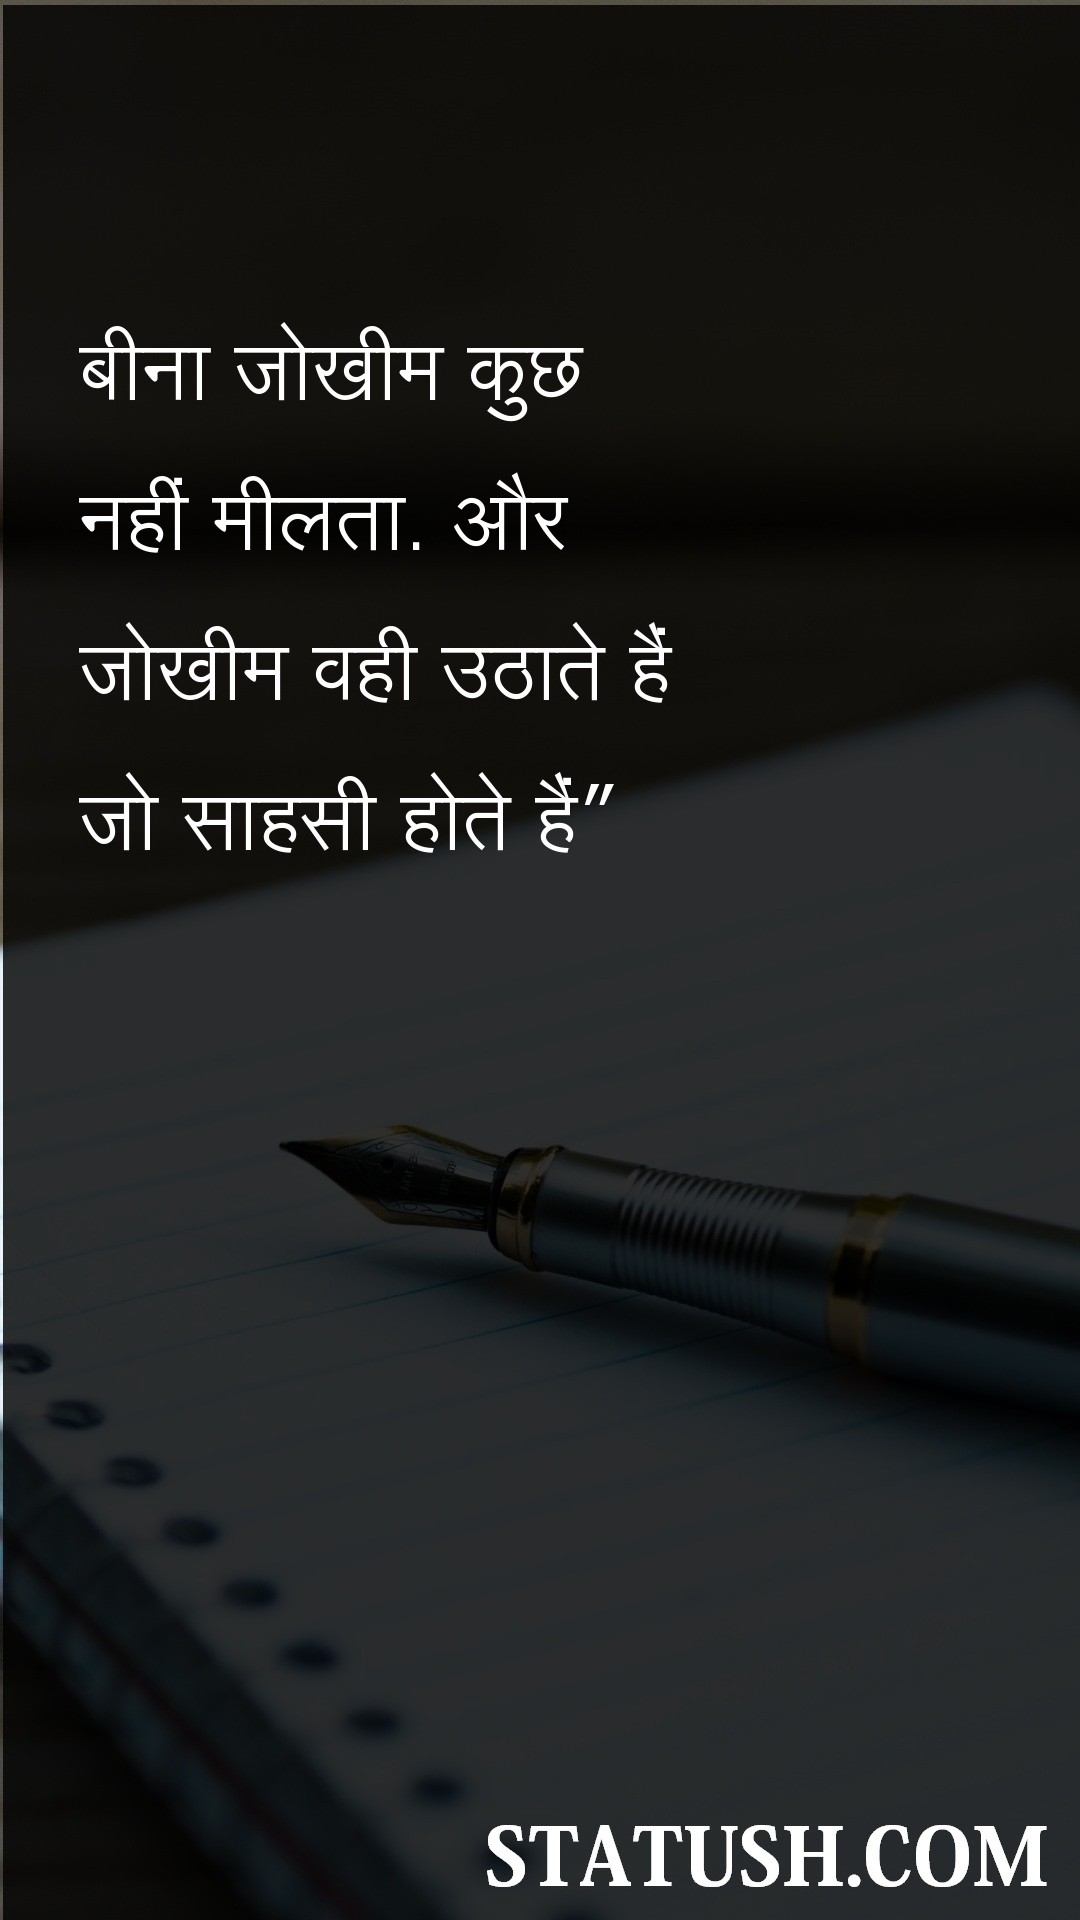 बीना जोखीम कुछ
नहीं मीलता. और
जोखीम वही उठाते हैं
जो साहसी होते हैं”
STATUSH.COM